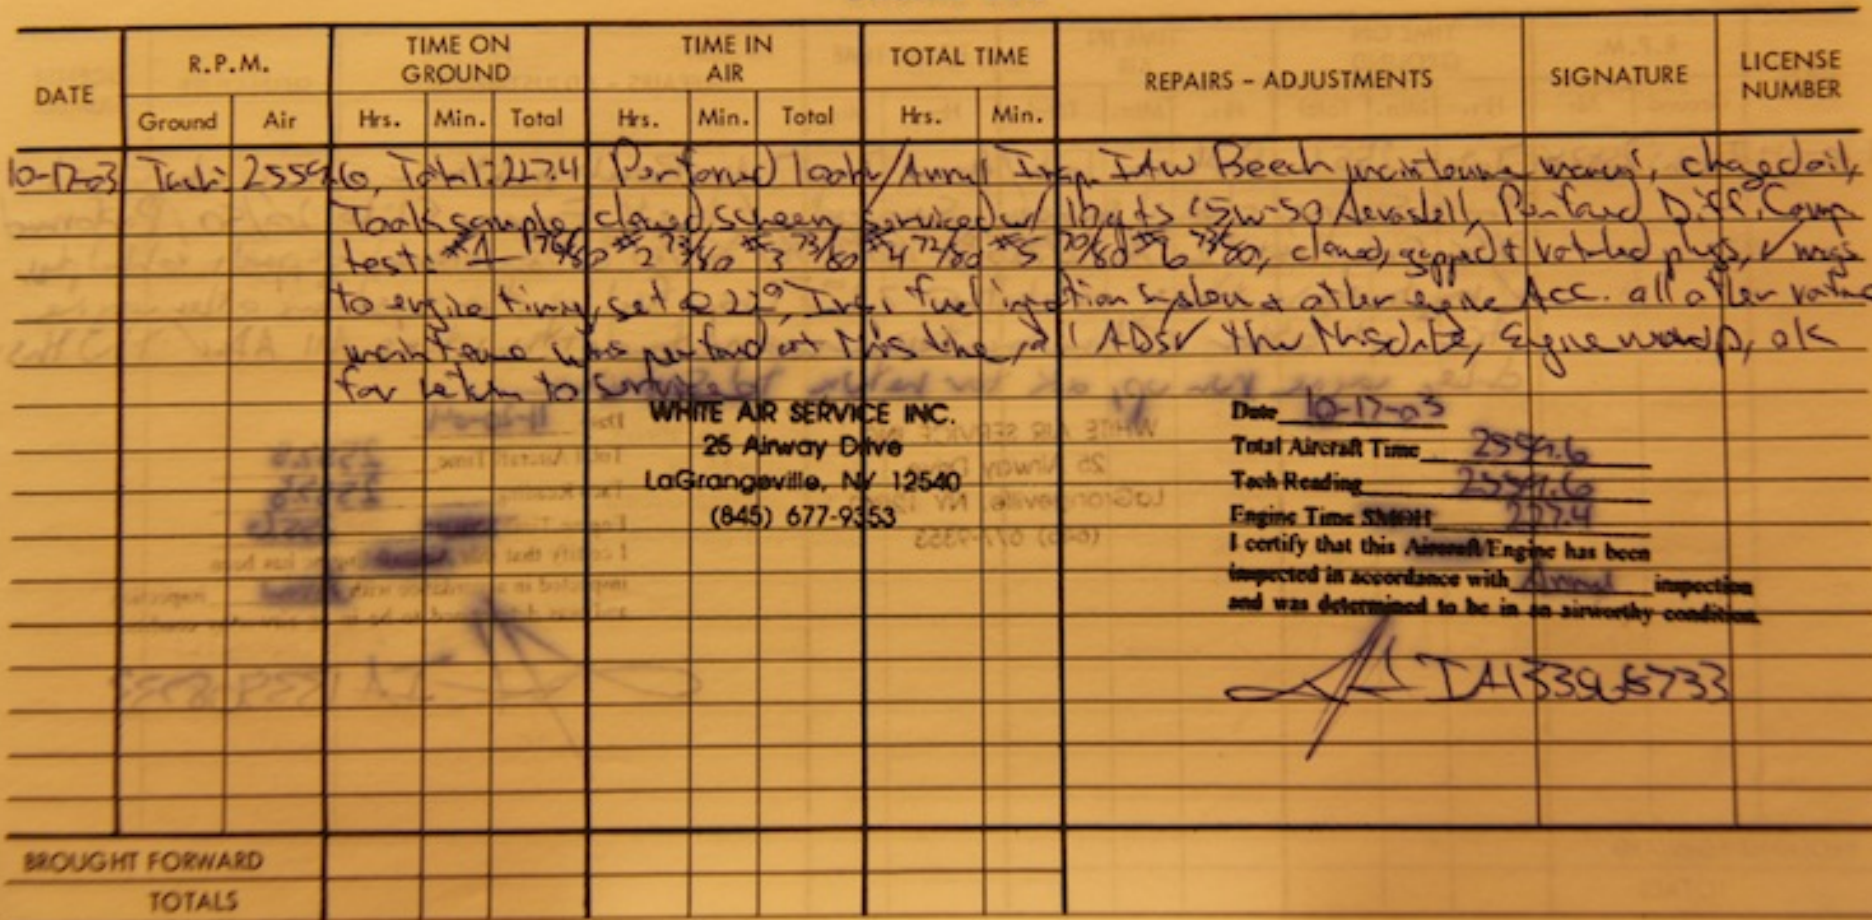 DATE
R.P.M.
Ground
Air
TIME ON GROUND
Hrs.
Min.
Total
TIME IN AIR
Hrs.
Min.
Total
TOTAL TIME
Hrs.
Min.
REPAIRS - ADJUSTMENTS
SIGNATURE
LICENSE NUMBER
10-17-03 Tach: 2559.6, Total: 227.4 Performed 100hr/Annual Insp. IAW Beech maintenance manual, changed oil,
Took sample, cleaned screen, serviced w/ 10qts 15w-50 Aeroshell, Performed Diff. Comp
test: #1 76/80 #2 73/80 #3 73/80 #4 72/80 #5 70/80 #6 73/80, cleaned, gapped + rotated plugs, ✓ mags
to engine timing, set @ 22°, Insp. fuel injection system + other engine Acc. all other routine
maintenance was performed at this time, all ADs ✓ thru this date, Engine run up, ok
for return to service
WHITE AIR SERVICE INC.
25 Airway Drive
LaGrangeville, NY 12540
(845) 677-9353
Date 10-17-03
Total Aircraft Time 2559.6
Tach Reading 2559.6
Engine Time SMOH 227.4
I certify that this Aircraft/Engine has been
inspected in accordance with Annual inspection
and was determined to be in an airworthy condition.
BROUGHT FORWARD
TOTALS